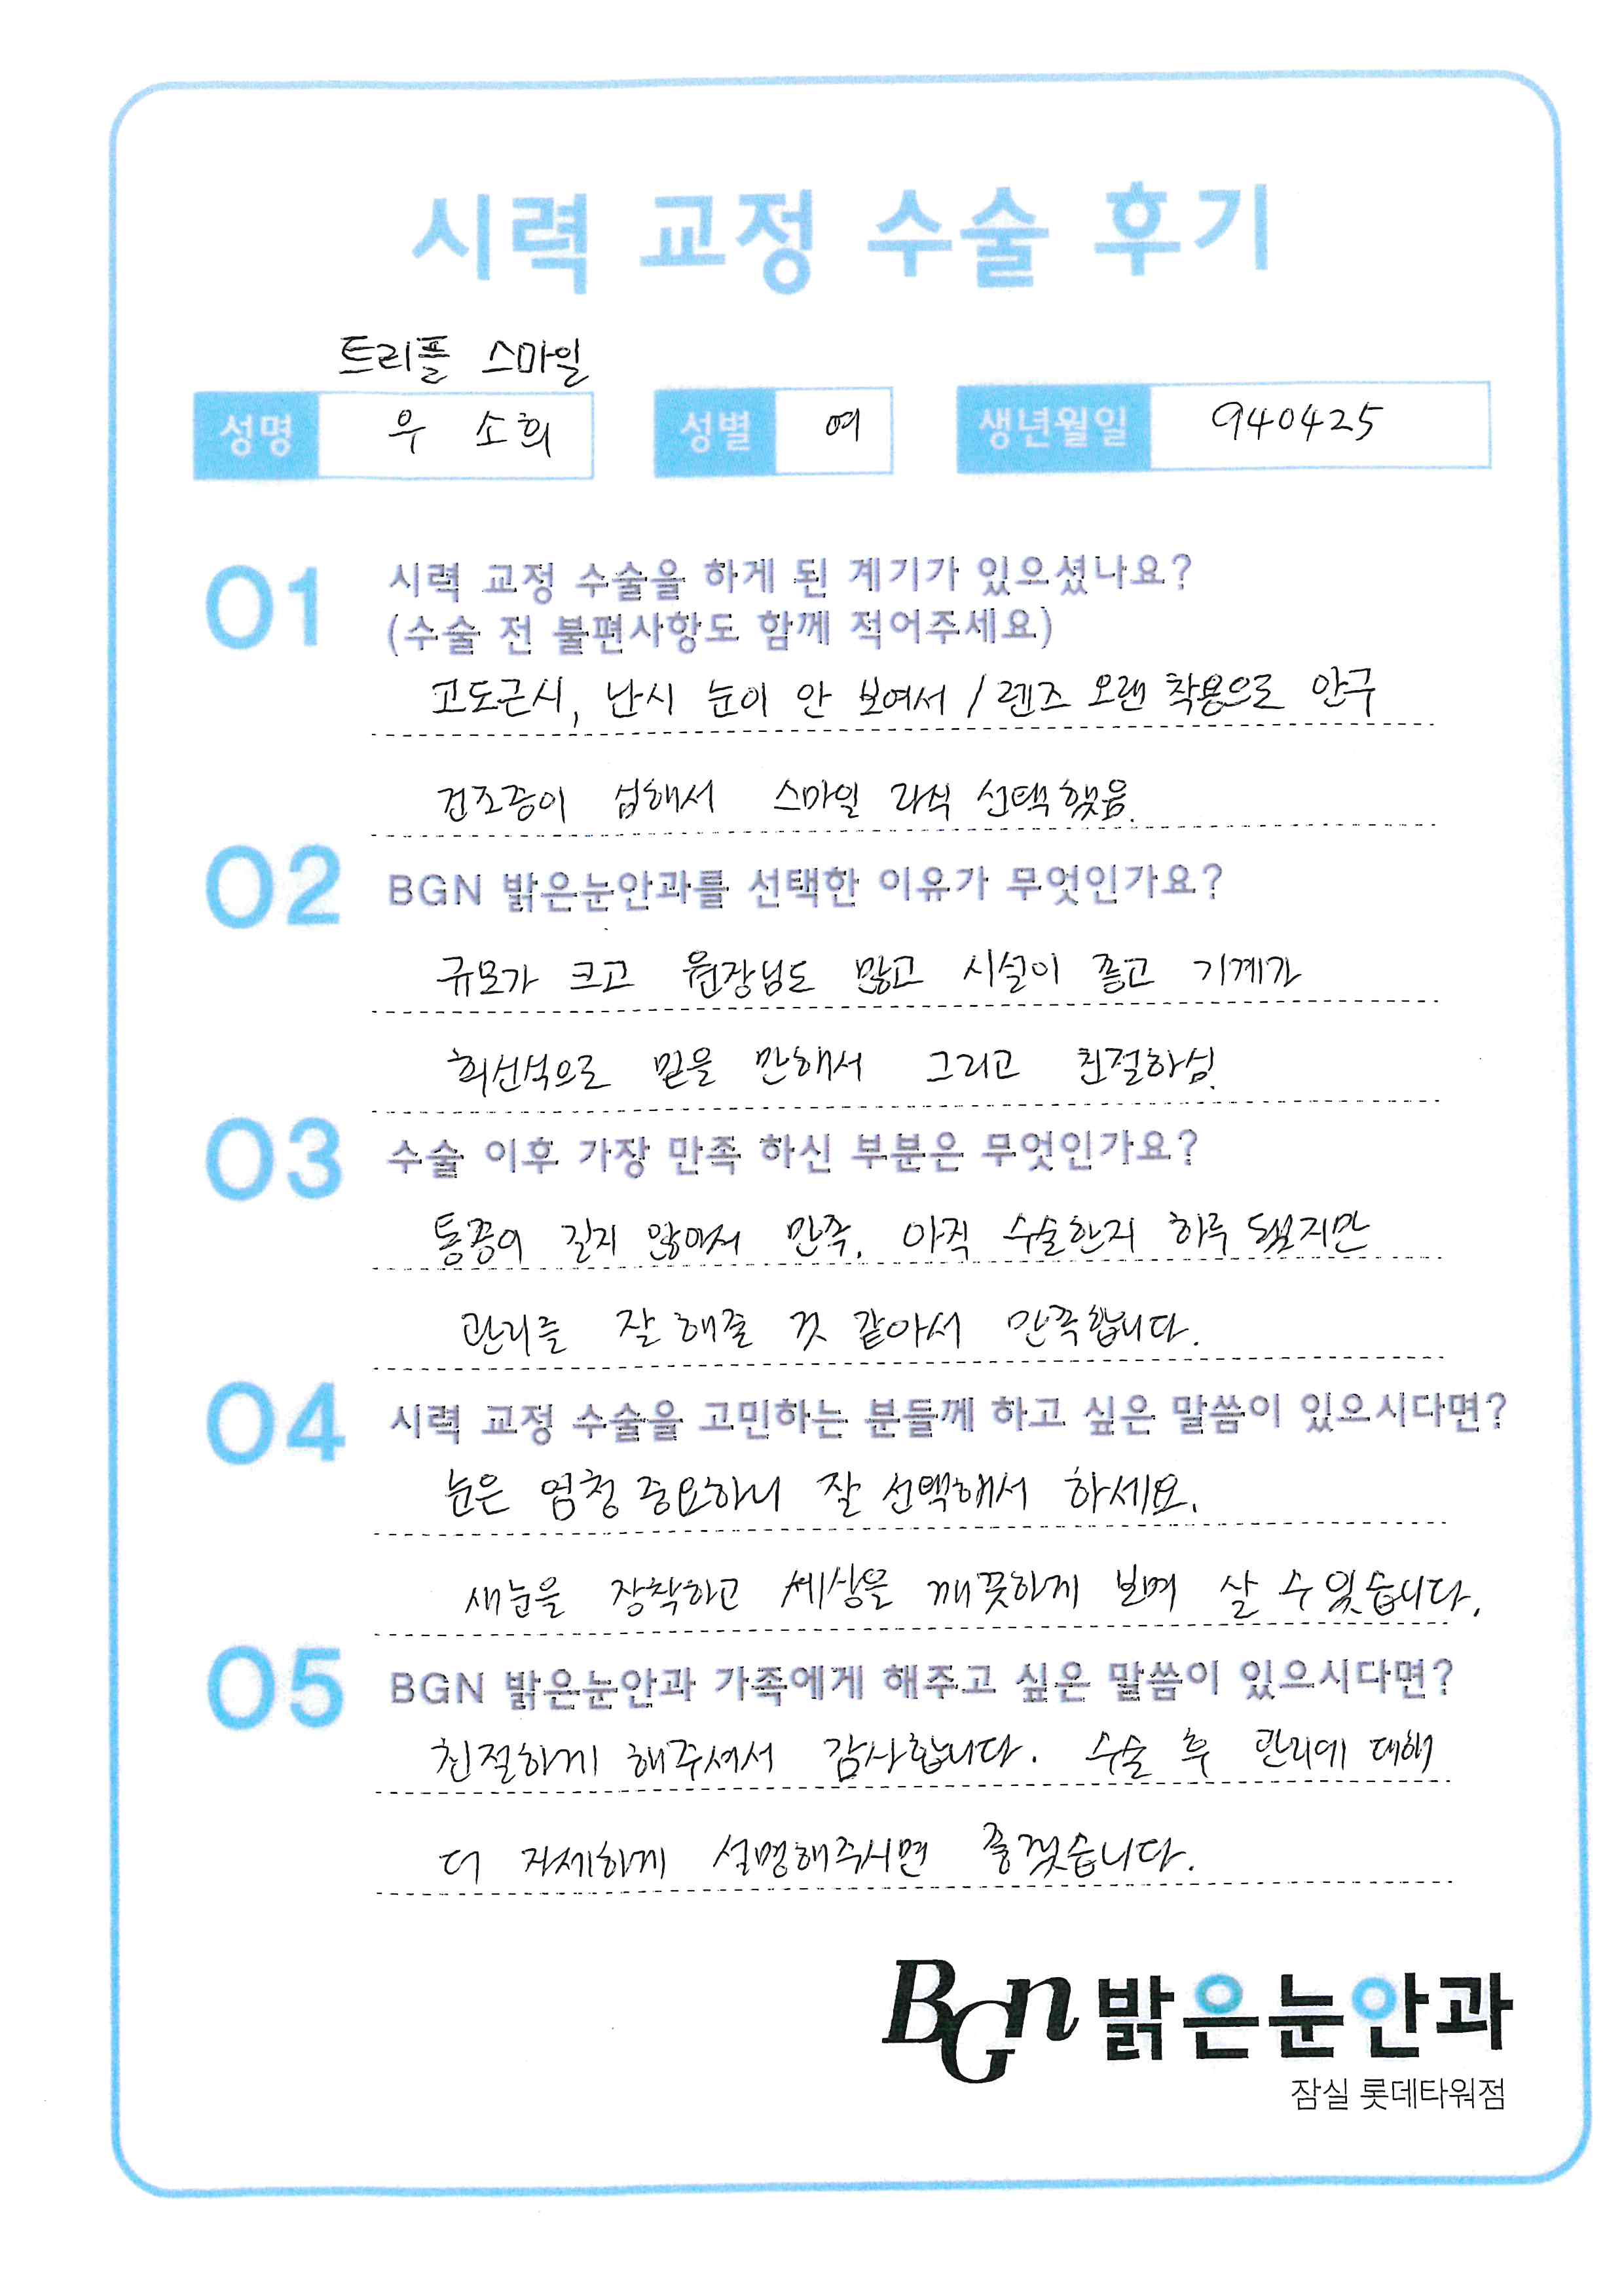 시력 교정 수술 후기
트리플 스마일
성명 우 소희 성별 여 생년월일 940425
01 시력 교정 수술을 하게 된 계기가 있으셨나요?
(수술 전 불편사항도 함께 적어주세요)
고도근시, 난시 눈이 안 보여서 / 렌즈 오랜 착용으로 안구
건조증이 심해서 스마일 라식 선택했음.
02 BGN 밝은눈안과를 선택한 이유가 무엇인가요?
규모가 크고 원장님도 많고 시설이 좋고 기계가
최선식으로 믿을 만해서 그리고 친절하심.
03 수술 이후 가장 만족 하신 부분은 무엇인가요?
통증이 길지 않아서 만족. 아직 수술한지 하루 됐지만
관리를 잘 해줄 것 같아서 만족합니다.
04 시력 교정 수술을 고민하는 분들께 하고 싶은 말씀이 있으시다면?
눈은 엄청 중요하니 잘 선택해서 하세요.
새눈을 장착하고 세상을 깨끗하게 보며 살 수 있습니다.
05 BGN 밝은눈안과 가족에게 해주고 싶은 말씀이 있으시다면?
친절하게 해주셔서 감사합니다. 수술 후 관리에 대해
더 자세하게 설명해주시면 좋겠습니다.
BGn 밝은눈안과
잠실 롯데타워점